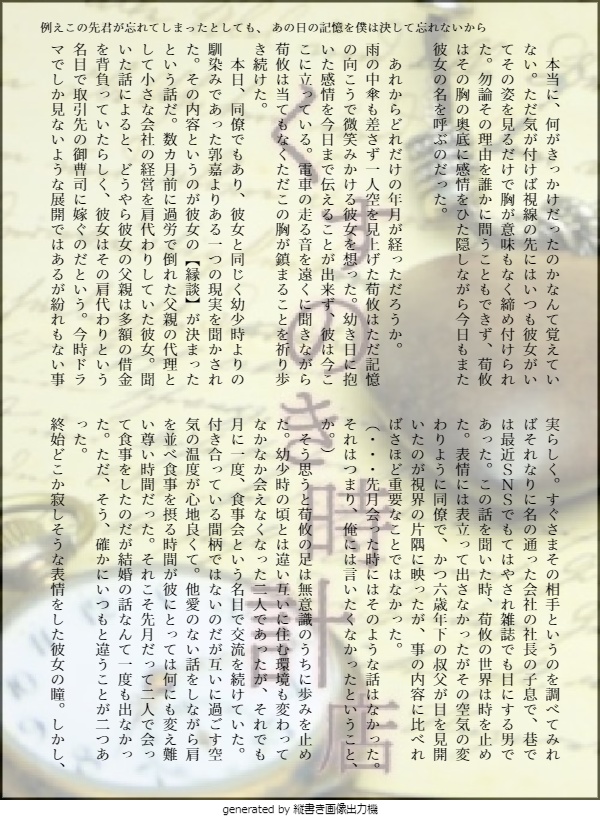 例えこの先君が忘れてしまったとしても、あの日の記憶を僕は決して忘れないから
　本当に、何がきっかけだったのかなんて覚えてい
ない。ただ気が付けば視線の先にはいつも彼女がい
てその姿を見るだけで胸が意味もなく締め付けられ
た。勿論その理由を誰かに問うこともできず、荀攸
はその胸の奥底に感情をひた隠しながら今日もまた
彼女の名を呼ぶのだった。
　あれからどれだけの年月が経っただろうか。
雨の中傘も差さず一人空を見上げた荀攸はただ記憶
の向こうで微笑みかける彼女を想った。幼き日に抱
いた感情を今日まで伝えることが出来ず、彼は今こ
こに立っている。電車の走る音を遠くに聞きながら
荀攸は当てもなくただこの胸が鎮まることを祈り歩
き続けた。
　本日、同僚でもあり、彼女と同じく幼少時よりの
馴染みであった郭嘉よりある一つの現実を聞かされ
た。その内容というのが彼女の【縁談】が決まった
という話だ。数カ月前に過労で倒れた父親の代理と
して小さな会社の経営を肩代わりしていた彼女。聞
いた話によると、どうやら彼女の父親は多額の借金
を背負っていたらしく、彼女はその肩代わりという
名目で取引先の御曹司に嫁ぐのだという。今時ドラ
マでしか見ないような展開ではあるが紛れもない事
実らしく。すぐさまその相手というのを調べてみれ
ばそれなりに名の通った会社の社長の子息で、巷で
は最近ＳＮＳでもてはやされ雑誌でも目にする男で
あった。この話を聞いた時、荀攸の世界は時を止め
た。表情には表立って出さなかったがその空気の変
わりように同僚で、かつ六歳年下の叔父が目を見開
いたのが視界の片隅に映ったが、事の内容に比べれ
ばさほど重要なことではなかった。
（・・・先月会った時にはそのような話はなかった。
それはつまり、俺には言いたくなかったということ、
か。）
　そう思うと荀攸の足は無意識のうちに歩みを止め
た。幼少時の頃とは違い互いに住む環境も変わって
なかなか会えなくなった二人であったが、それでも
月に一度、食事会という名目で交流を続けていた。
付き合っている間柄ではないのだが互いに過ごす空
気の温度が心地良くて。他愛のない話をしながら肩
を並べ食事を摂る時間が彼にとっては何にも変え難
い尊い時間だった。それこそ先月だって二人で会っ
て食事をしたのだが結婚の話なんて一度も出なかっ
た。ただ、そう、確かにいつもと違うことが二つあ
った。
終始どこか寂しそうな表情をした彼女の瞳。しかし、
のき時計店
generated by 縦書き画像出力機